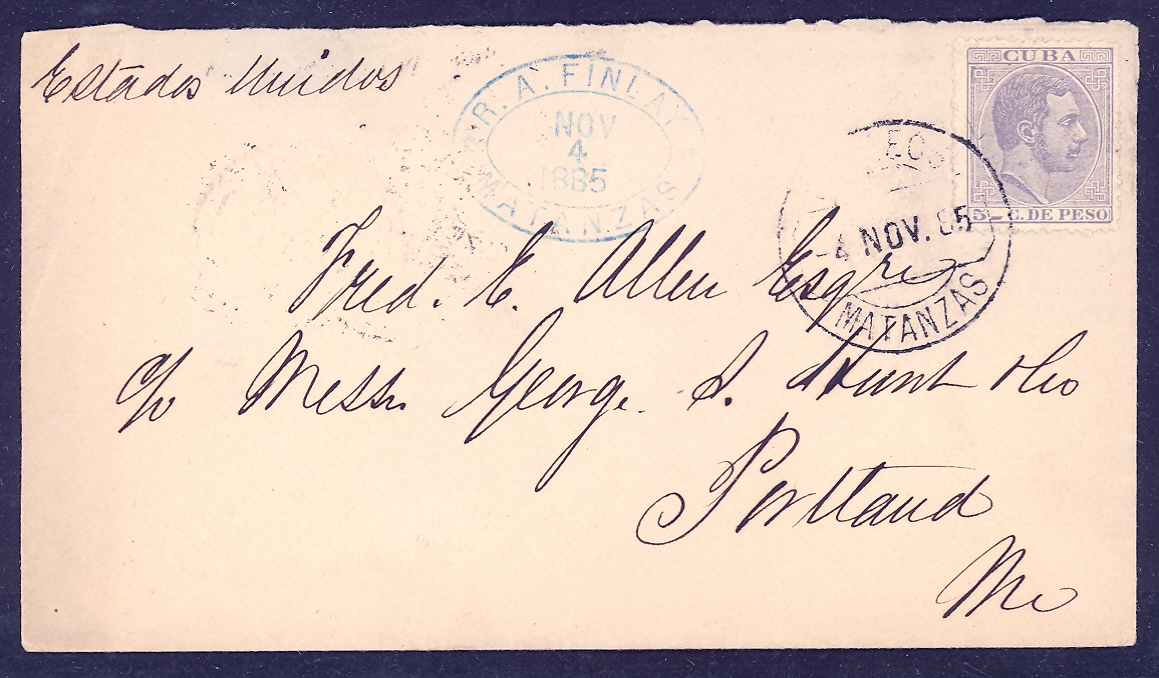 Estados Unidos
R. A. FINLAY
NOV
4
1885
MATANZAS
CUBA
5 - C. DE PESO
4 NOV. 85
MATANZAS
Fred. E. Allen Esqre
c/o Messrs George S. Hunt & Co
Portland
Me